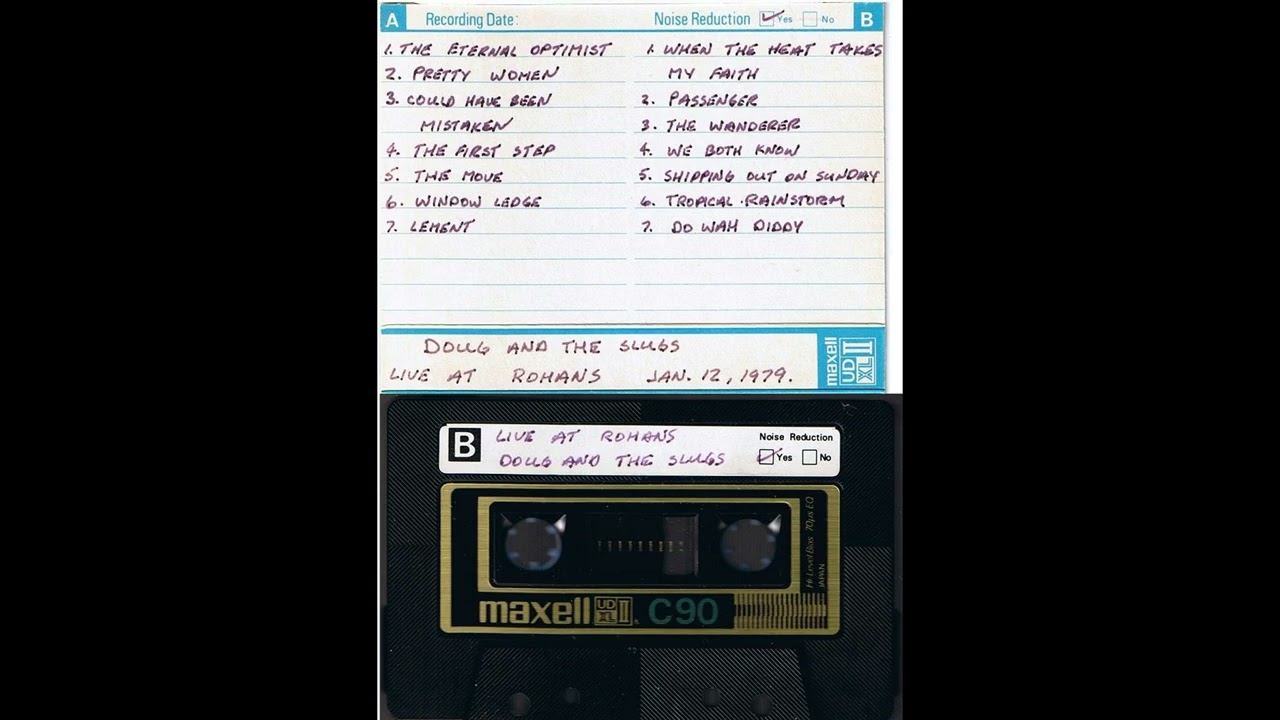 A Recording Date: Noise Reduction Yes No B
1. THE ETERNAL OPTIMIST
2. PRETTY WOMEN
3. COULD HAVE BEEN
MISTAKEN
4. THE FIRST STEP
5. THE MOVE
6. WINDOW LEDGE
7. LEMENT
1. WHEN THE HEAT TAKES
MY FAITH
2. PASSENGER
3. THE WANDERER
4. WE BOTH KNOW
5. SHIPPING OUT ON SUNDAY
6. TROPICAL RAINSTORM
7. DO WAH DIDDY
DOUG AND THE SLUGS
LIVE AT ROHANS JAN. 12, 1979.
maxell UD XL II
B LIVE AT ROHANS
DOUG AND THE SLUGS
Noise Reduction
Yes No
Hi-Level Bias 70µs EQ
JAPAN
maxell UD XL II C90